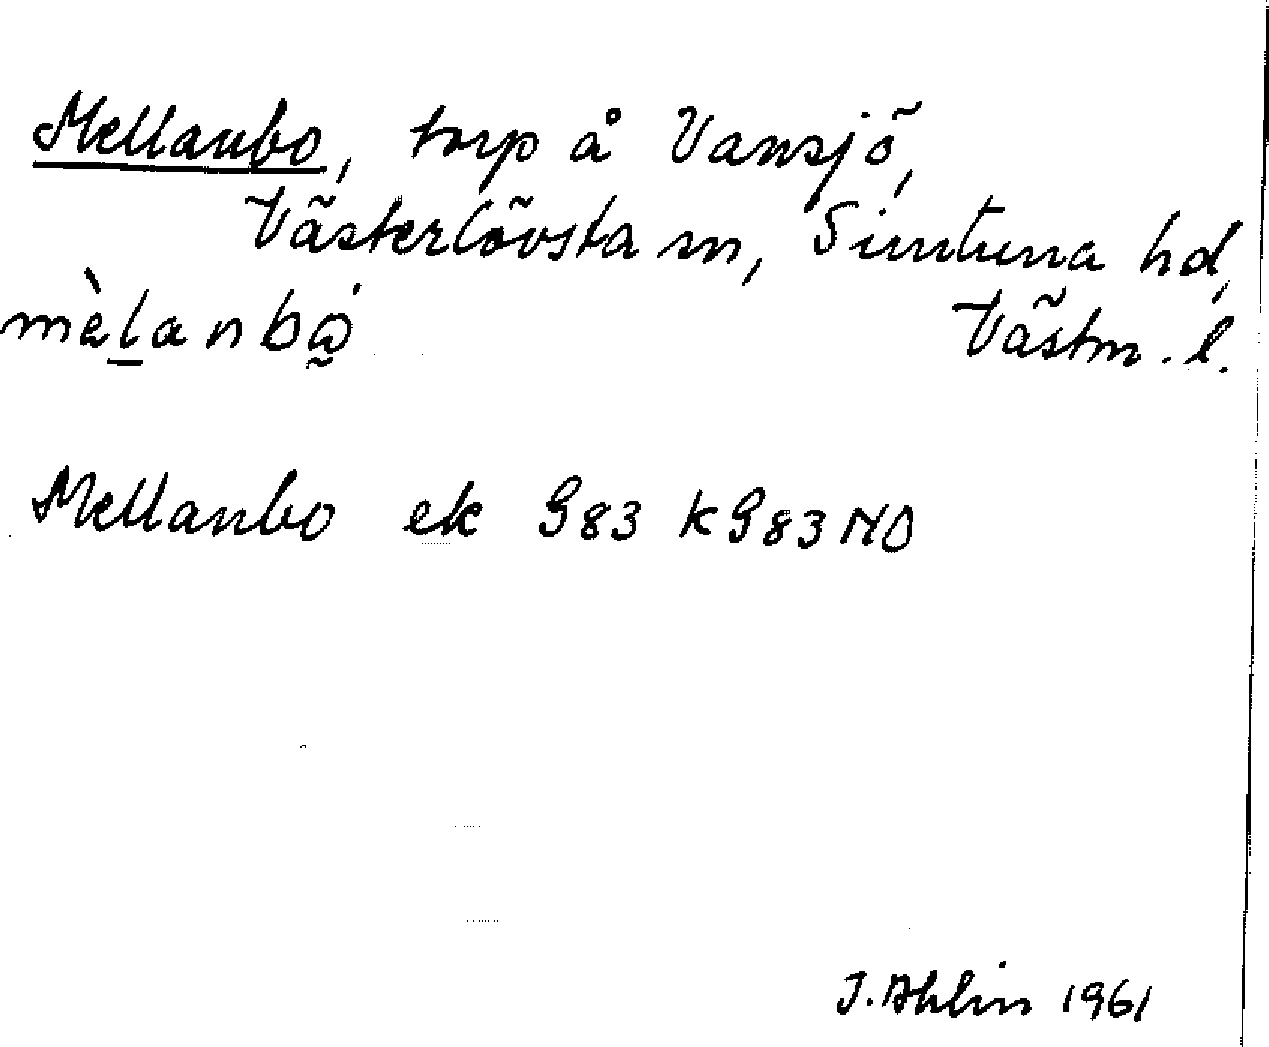 Mellanbo, torp å Vansjö,
Västerlövsta sn, Simtuna hd,
mèl̲anbώ̰ Västm. l.
Mellanbo ek 983 k983NO
J. Ahlin 1961